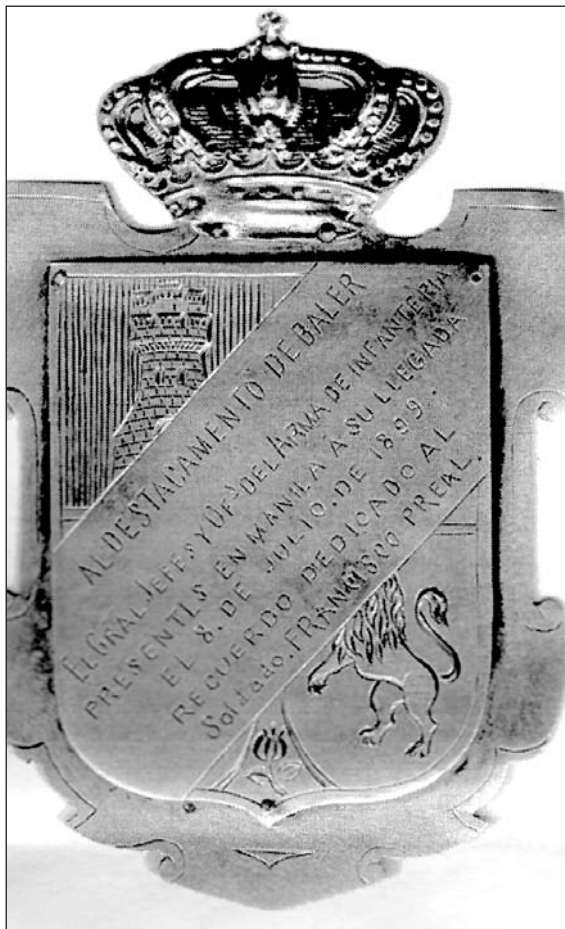 AL DESTACAMENTO DE BALER
EL GRAL JEFES Y OFS DEL ARMA DE INFANTERIA
PRESENTES EN MANILA A SU LLEGADA
EL 8. DE JULIO. DE 1899.
RECUERDO DEDICADO AL
Soldado. FRANCISCO PREAL.